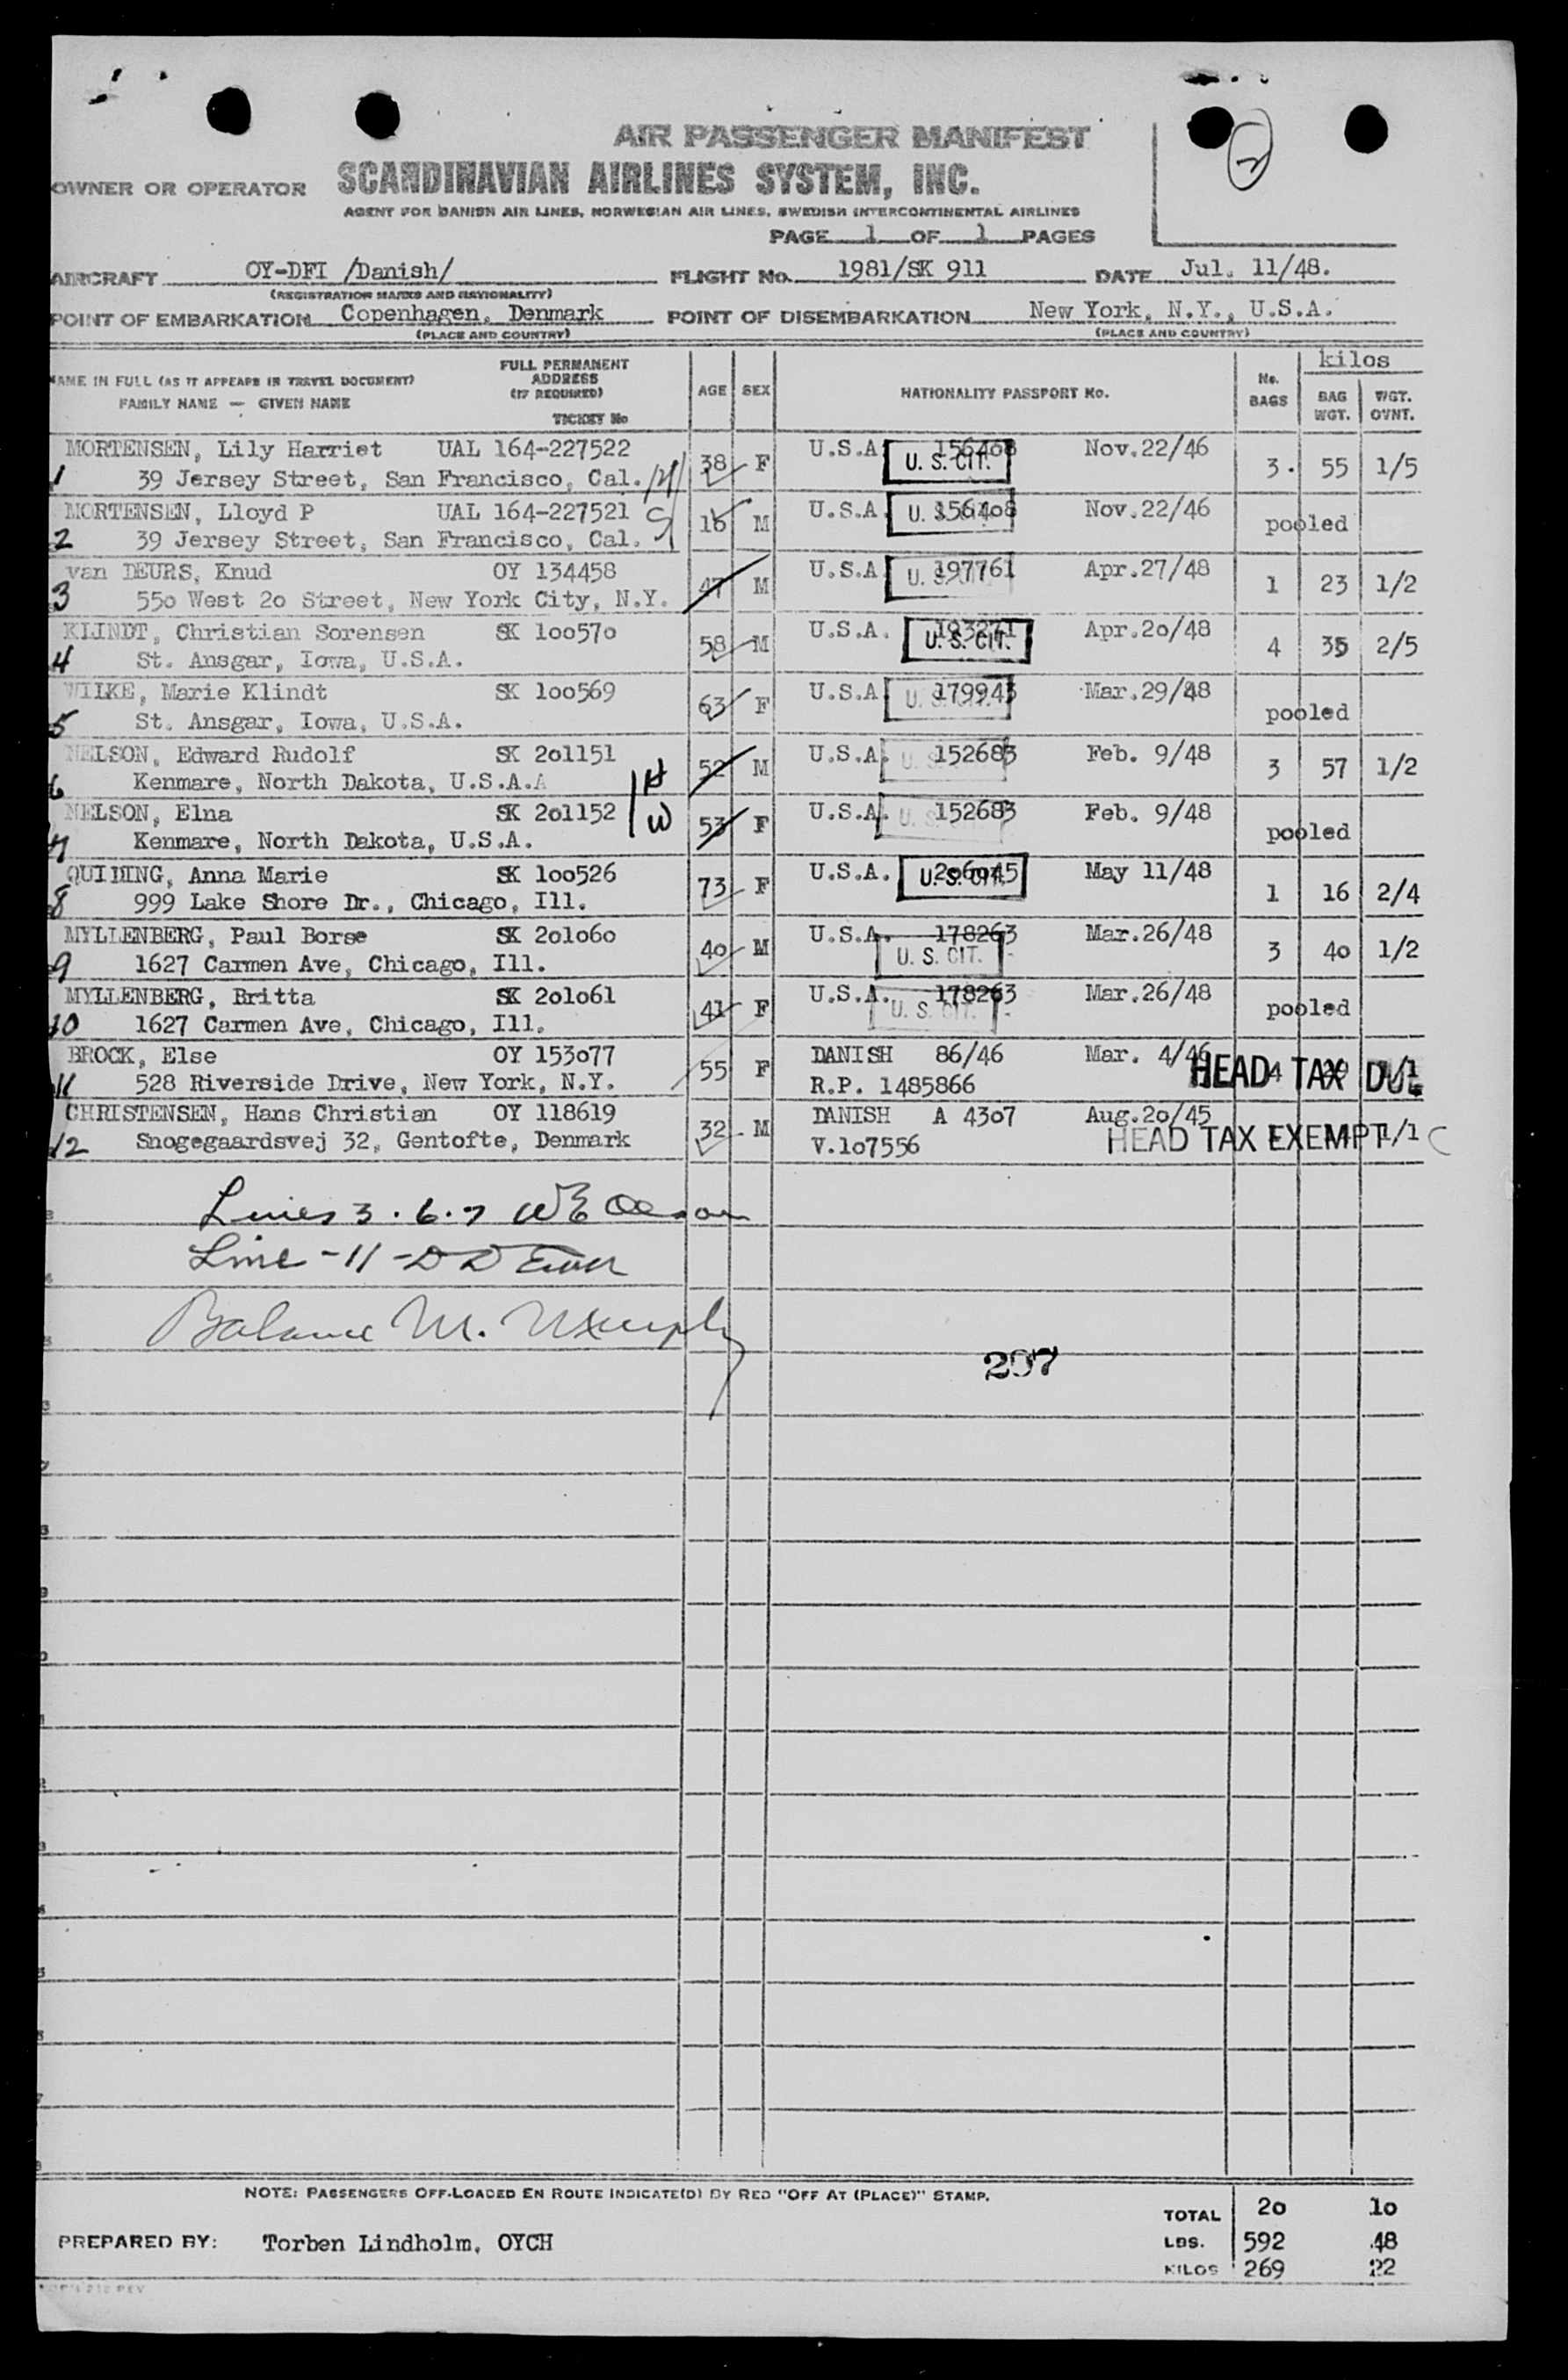 2
AIR PASSENGER MANIFEST
OWNER OR OPERATOR SCANDINAVIAN AIRLINES SYSTEM, INC.
AGENT FOR DANISH AIR LINES, NORWEGIAN AIR LINES, SWEDISH INTERCONTINENTAL AIRLINES
PAGE 1 OF 1 PAGES
AIRCRAFT OY-DFI /Danish/ FLIGHT No. 1981/SK 911 DATE Jul. 11/48.
(REGISTRATION MARKS AND NATIONALITY)
POINT OF EMBARKATION Copenhagen, Denmark POINT OF DISEMBARKATION New York, N.Y., U.S.A.
(PLACE AND COUNTRY) (PLACE AND COUNTRY)
NAME IN FULL (AS IT APPEARS IN TRAVEL DOCUMENT) FAMILY NAME — GIVEN NAME FULL PERMANENT ADDRESS (IF REQUIRED) TICKET No AGE SEX NATIONALITY PASSPORT No. No. BAGS kilos BAG WGT. WGT. OVNT.
MORTENSEN, Lily Harriet UAL 164-227522 38 F U.S.A. 156408 U. S. CIT. Nov.22/46 3 55 1/5
1 39 Jersey Street, San Francisco, Cal.
MORTENSEN, Lloyd P UAL 164-227521 16 M U.S.A. 156408 Nov.22/46 pooled
2 39 Jersey Street, San Francisco, Cal.
van DEURS, Knud OY 134458 47 M U.S.A. 197761 Apr.27/48 1 23 1/2
3 550 West 20 Street, New York City, N.Y.
KLINDT, Christian Sorensen SK 100570 58 M U.S.A. 193271 U. S. CIT. Apr.20/48 4 35 2/5
4 St. Ansgar, Iowa, U.S.A.
WILKE, Marie Klindt SK 100569 63 F U.S.A. 179943 Mar.29/48 pooled
5 St. Ansgar, Iowa, U.S.A.
NELSON, Edward Rudolf SK 201151 52 M U.S.A. 152683 Feb. 9/48 3 57 1/2
6 Kenmare, North Dakota, U.S.A. H
NELSON, Elna SK 201152 W 53 F U.S.A. 152683 Feb. 9/48 pooled
7 Kenmare, North Dakota, U.S.A.
QUIMING, Anna Marie SK 100526 73 F U.S.A. 206945 U. S. CIT. May 11/48 1 16 2/4
8 999 Lake Shore Dr., Chicago, Ill.
MYLLENBERG, Paul Borse SK 201060 40 M U.S.A. 178263 U. S. CIT. Mar.26/48 3 40 1/2
9 1627 Carmen Ave, Chicago, Ill.
MYLLENBERG, Britta SK 201061 41 F U.S.A. 178263 U. S. CIT. Mar.26/48 pooled
10 1627 Carmen Ave, Chicago, Ill.
BROCK, Else OY 153077 55 F DANISH 86/46 Mar. 4/46 HEAD TAX DUE
11 528 Riverside Drive, New York, N.Y. R.P. 1485866
CHRISTENSEN, Hans Christian OY 118619 32 M DANISH A 4307 Aug.20/45 1/1
12 Snogegaardsvej 32, Gentofte, Denmark V.107556 HEAD TAX EXEMPT
Lines 3 . 6 . 7 WE Olsson
Line - 11 - D D
Balance M.
207
NOTE: PASSENGERS OFF-LOADED EN ROUTE INDICATE(D) BY RED "OFF AT (PLACE)" STAMP.
TOTAL 20 10
PREPARED BY: Torben Lindholm, OYCH LBS. 592 48
KILOS 269 22